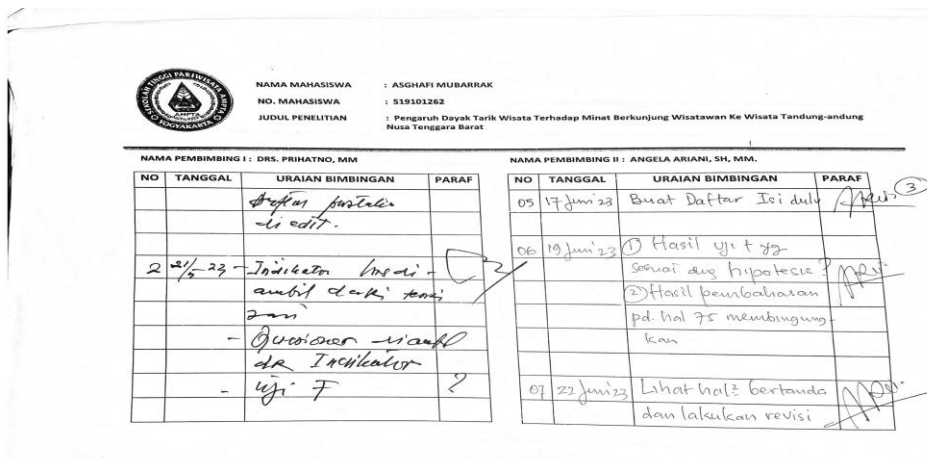 SEKOLAH TINGGI PARIWISATA AMPTA
YOGYAKARTA
AMPTA
NAMA MAHASISWA : ASGHAFI MUBARRAK
NO. MAHASISWA : 519101262
JUDUL PENELITIAN : Pengaruh Dayak Tarik Wisata Terhadap Minat Berkunjung Wisatawan Ke Wisata Tandung-andung
Nusa Tenggara Barat
NAMA PEMBIMBING I : DRS. PRIHATNO, MM
NO TANGGAL URAIAN BIMBINGAN PARAF
di edit.
2 21/5-23 - Indikator
ambil dari teori
-
Indikator
- uji F ?
NAMA PEMBIMBING II : ANGELA ARIANI, SH, MM.
NO TANGGAL URAIAN BIMBINGAN PARAF
3
05 17 Juni'23 Buat Daftar Isi dulu
06 19 Juni'23 ① Hasil uji t yg
sesuai dng hipotesis?
② Hasil pembahasan
pd. hal 75 membingung-
kan
07 22 Juni'23 Lihat hal² bertanda
dan lakukan revisi